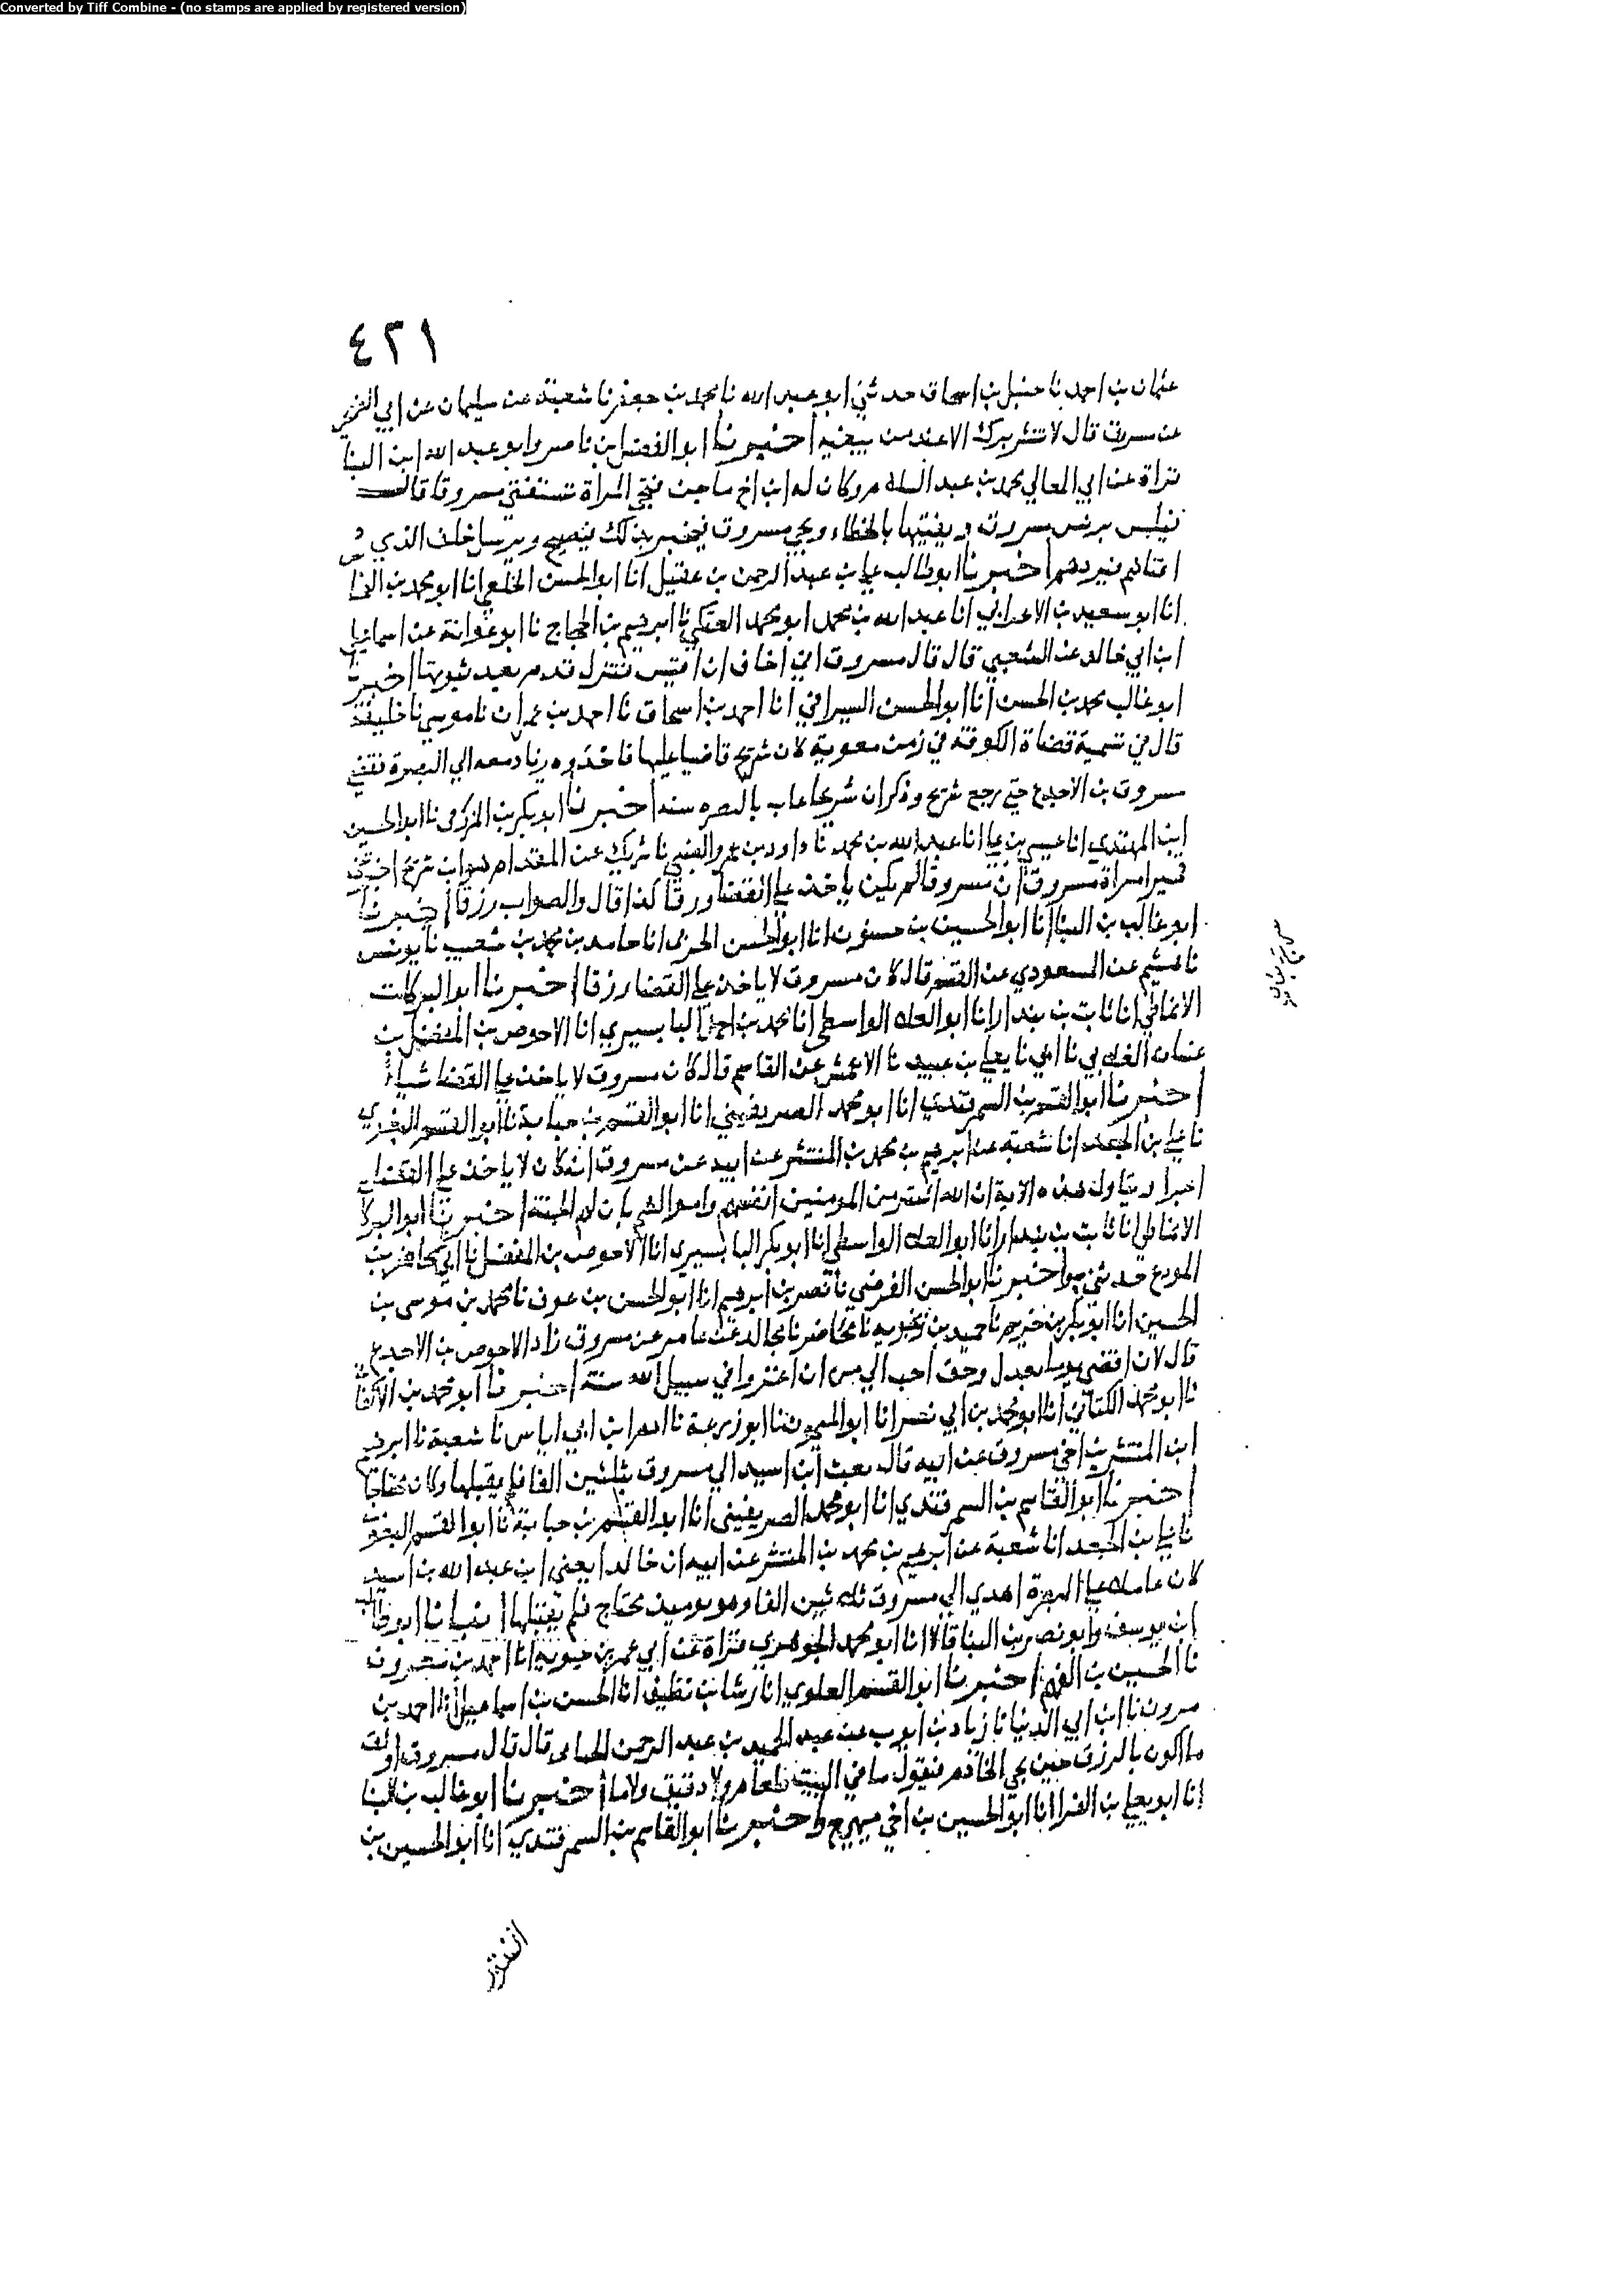 Converted by Tiff Combine - (no stamps are applied by registered version)
٤٢١
عثمان بن احمد نا حنبل بن اسحاق حدثني ابو عبد الله نا محمد بن جعفر نا شعبة عن سليمان عن ابي
عن مسروق قال لا تنشر بزك الا عند من يبغيه اخبرنا ابو الفضل ابن ناصر وابو عبد الله ابن البنا
قراة عن ابي المعالي محمد بن عبد السلام وكان له ابن اخ ماجن فتجي المراة تستفتي مسروقا قال
فيلبس برنس مسروق ويفتيها بالخطاء ويجي مسروق فيخبر بذلك فيصيح ويرسل خلف الذي
افتاهم فيردهم اخبرنا ابو طالب علي بن عبد الرحمن بن عقيل انا ابو الحسن الخلعي انا ابو محمد بن النحا
انا ابو سعيد بن الاعرابي انا عبد الله بن محمد ابو محمد العتكي نا ابرهيم بن الحجاج نا ابو عوانة عن اسماعيل
ابن ابي خالد عن الشعبي قال قال مسروق اني اخاف ان اقيس فتزل قدم بعد ثبوتها اخبرنا
ابو غالب محمد بن الحسن انا ابو الحسن السيرافي انا احمد بن اسحاق نا احمد بن عمران نا موسي نا خليفة
قال في تسمية قضاة الكوفة في زمن معوية كان شريح قاضيا عليها فاخذه زياد معه الي البصرة فقضي
مسروق بن الاجدع حتي رجع شريح وذكر ان شريحا غاب بالبصره سنة اخبرنا ابو بكر بن المزرفي نا ابو الحسين
ابن المهتدي انا عيسي بن علي انا عبد الله بن محمد نا داود بن عمرو الضبي نا شريك عن المقدام هو ابن شريح اخبرتني
قمير امراة مسروق ان مسروقا لم يكن ياخذ علي القضا ورقا كذا قال والصواب رزقا اخبرنا
ابو غالب بن البنا انا ابو الحسين بن حسنون انا ابو الحسن الحربي انا حامد بن محمد بن شعيب نا يونس
نا هشيم عن المسعودي عن القسم قال كان مسروق لا ياخذ علي القضا رزقا اخبرنا ابو البركات
الانماطي انا ثابت بن بندار انا ابو العلا الواسطي انا محمد بن احمد البابسيري انا الاحوص بن المفضل بن
غسان الغلابي نا ابي نا يعلي بن عبيد نا الاعمش عن القاسم قال كان مسروق لا ياخذ علي القضا شياء
اخبرنا ابو القسم بن السمرقندي انا ابو محمد الصريفيني انا ابو القسم بن حبابة نا ابو القسم البغوي
نا علي بن الجعد انا شعبة عن ابرهيم بن محمد بن المنتشر عن ابيه عن مسروق انه كان لا ياخذ علي القضا
اجرا ويتاول هذه الاية ان الله اشتري من المومنين انفسهم واموالهم بان لهم الجنة اخبرنا ابو البركا
الانماطي انا ثابت بن بندار انا ابو العلا الواسطي انا ابو بكر البابسيري انا الاحوص بن المفضل نا ابي نا محاضر بن
المورع حدثني واخبرنا ابو الحسن الفرضي نا نصر بن ابرهيم انا ابو الحسن بن عوف نا محمد بن موسي بن
الحسين انا ابو بكر بن خريم نا حميد بن زنجويه نا محاضر نا مجالد عن عامر عن مسروق زاد الاحوص بن الاجدع
قال لان اقضي يوما بعدل وحق احب الي من ان اغزو في سبيل الله سنة اخبرنا ابو محمد بن الاكفا
نا ابو محمد الكتاني انا ابو محمد بن ابي نصر انا ابو الميمون نا ابو زرعة نا ادم ابن ابي اياس نا شعبة نا ابرهيم
ابن المنتشر بن اخي مسروق عن ابيه قال بعث ابن اسيد الي مسروق بثلثين الفا فلم يقبلها وكان محتاجا
اخبرنا ابو القاسم بن السمرقندي انا ابو محمد الصريفيني انا ابو القسم بن حبابة نا ابو القسم البغوي
نا علي بن الجعد انا شعبة عن ابرهيم بن محمد بن المنتشر عن ابيه ان خالدا يعني ابن عبد الله بن اسيد
كان عاملا علي البصرة اهدي الي مسروق ثلاثين الفا وهو يوميذ محتاج فلم يقبلها انبانا ابو طالب
ابن يوسف وابو نصر بن البنا قالا انا ابو محمد الجوهري قراة عن ابي عمر بن حيوية انا احمد بن معروف
نا الحسين بن الفهم اخبرنا ابو القسم العلوي انا رشا بن نظيف انا الحسن بن اسماعيل انا احمد بن
مروان نا ابن ابي الدنيا نا زياد بن ايوب عن عبد الحميد بن عبد الرحمن الحماني قال قال مسروق اوثق
ما اكون بالرزق حين يجي الخادم فتقول ما في البيت طعام ولا دقيق ولا ما اخبرنا ابو غالب بن البنا
انا ابو يعلي بن الفرا انا ابو الحسين بن اخي ميمي ح واخبرنا ابو القاسم بن السمرقندي انا ابو الحسين بن